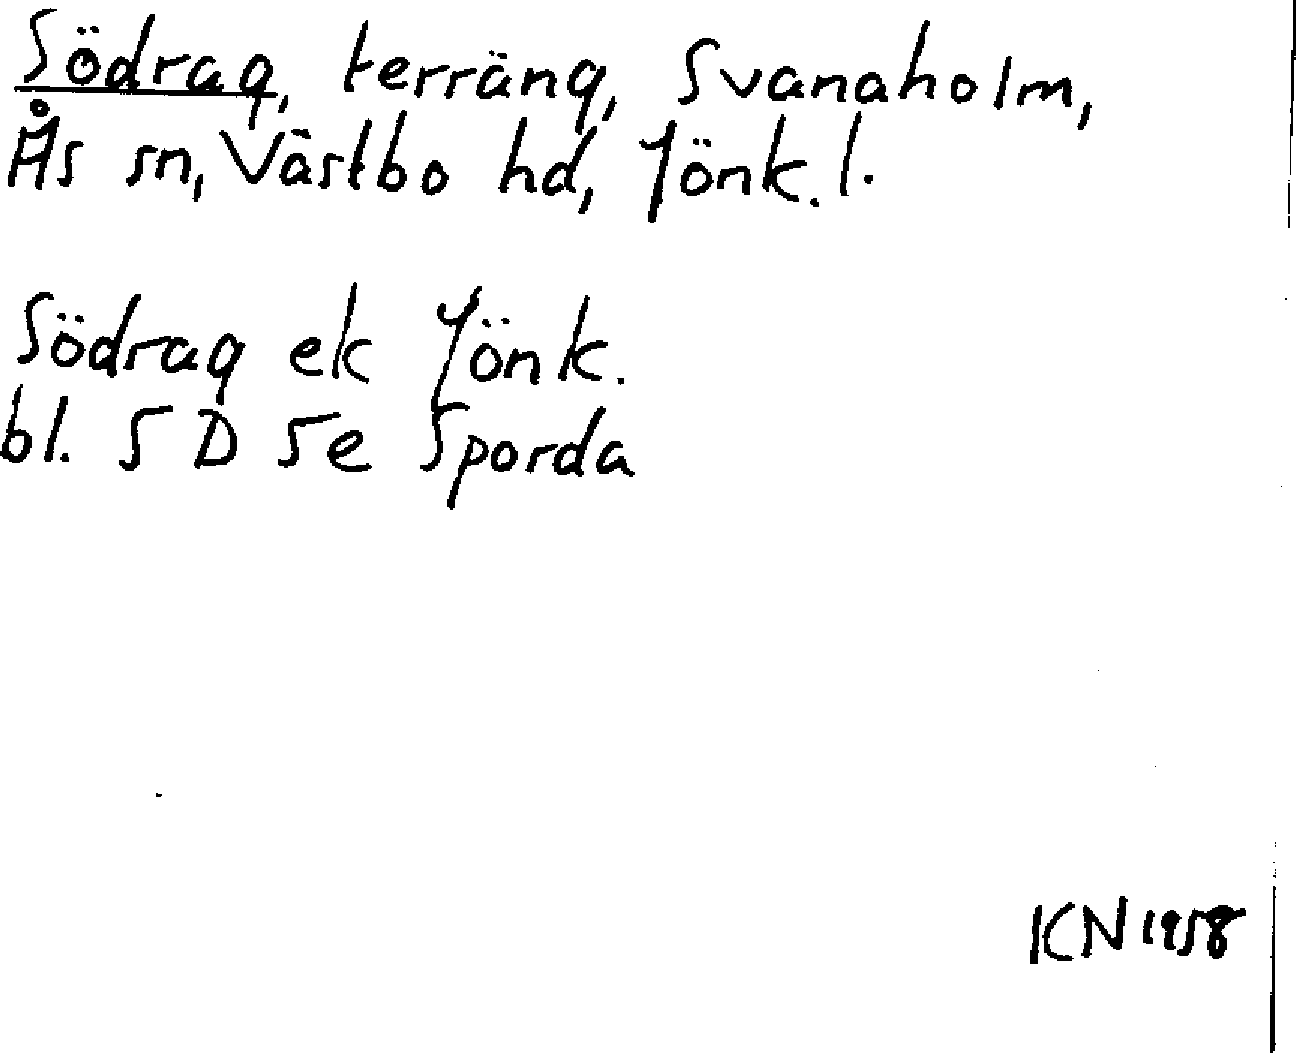 Södrag, terräng, Svanaholm,
Ås sn, Västbo hd, Jönk. l.
Södrag ek Jönk.
bl. 5 D 5e Sporda
KN 1958